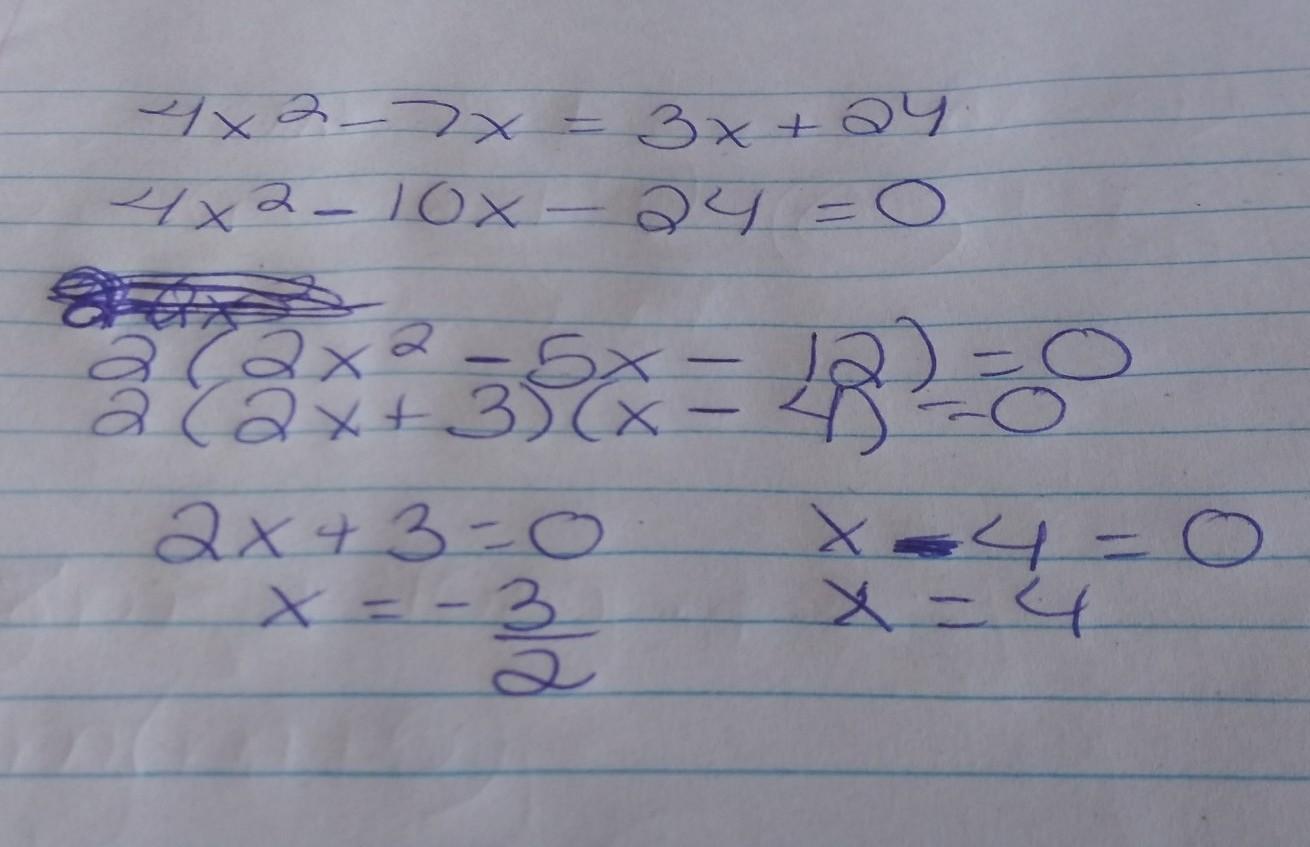 4x² - 7x = 3x + 24
4x² - 10x - 24 = 0
2(2x² - 5x - 12) = 0
2(2x + 3)(x - 4) = 0
2x + 3 = 0 x - 4 = 0
x = - 3/2 x = 4